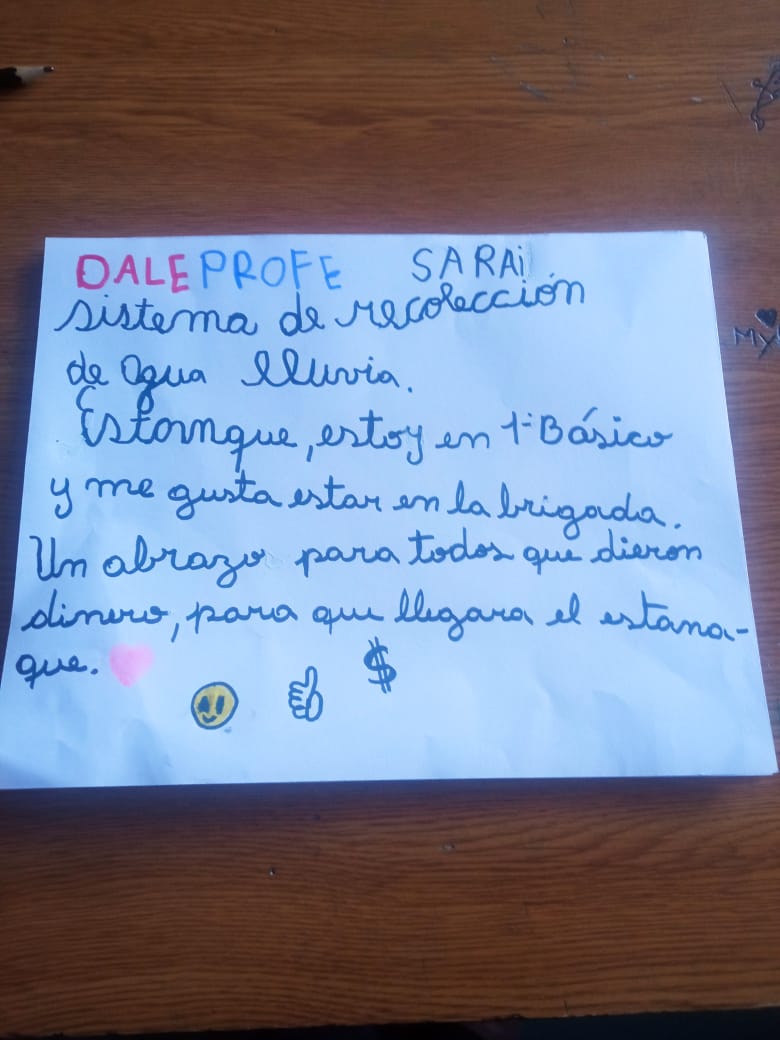 DALE PROFE SARAi
sistema de recolección
de agua lluvia.
Estanque, estoy en 1° Básico
y me gusta estar en la brigada.
Un abrazo para todos que dieron
dinero, para que llegara el estana-
que.
$
MY